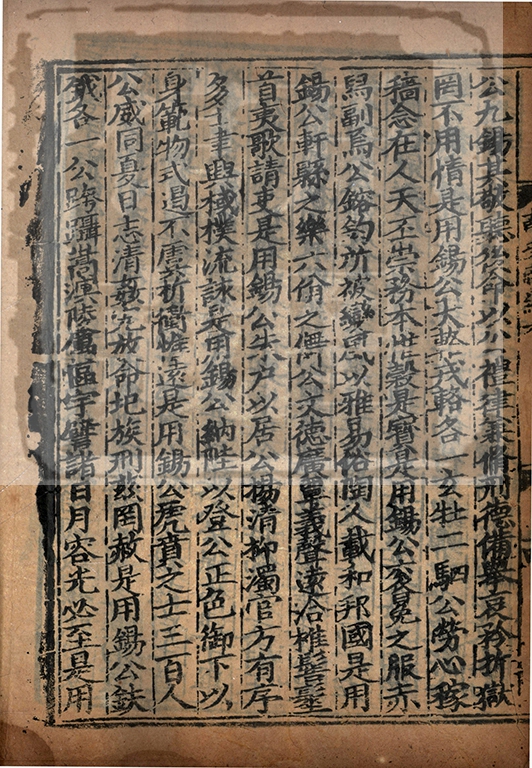 公九錫其敬聽後命以公禮律兼脩刑德備舉哀矜折獄
罔不用情是用錫公大輅戎輅各一玄牡二駟公勞心稼
穡念在人天丕崇務本惟穀是寶是用錫公袞冕之服赤
舄副焉公鎔鈞所被變風以雅易俗陶人載和邦國是用
錫公軒縣之樂六佾之儛公文德廣覃義聲遠洽椎髻髽
首夷歌請吏是用錫公朱戶以居公揚清抑濁官方有序
多士聿興棫樸流詠是用錫公納陛以登公正色御下以
身範物式遏不虞折衝惟遠是用錫公虎賁之士三百人
公威同夏日志清姦宄放命圮族刑茲罔赦是用錫公鈇
鉞各一公跨躡嵩溟陵厲區宇譬諸日月容光必至是用